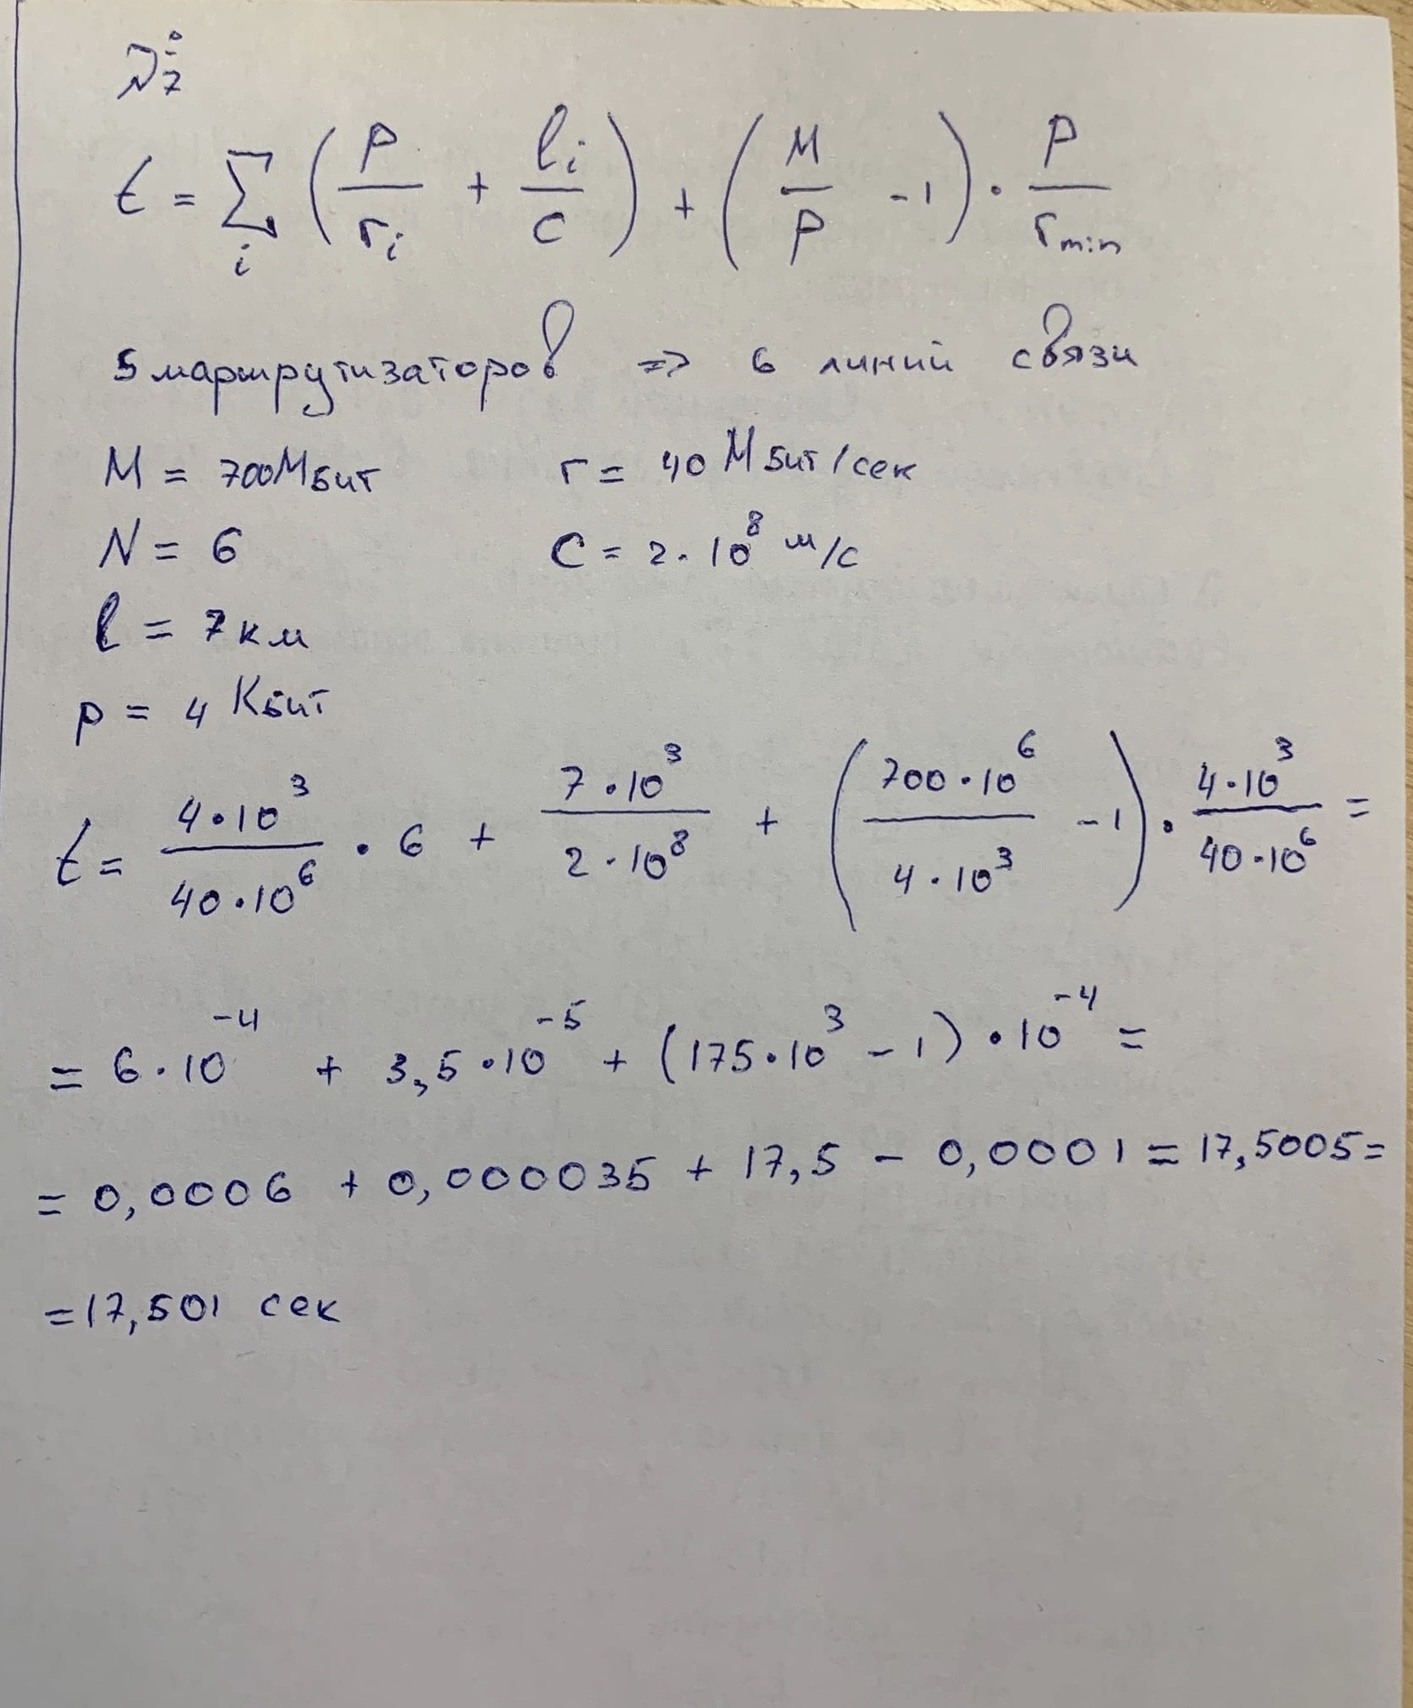 №7
t = ∑i (p/ri + li/c) + (M/p - 1) · p/rmin
5 маршрутизаторов => 6 линий связи
M = 700Мбит r = 40 Мбит/сек
N = 6 C = 2·10^8 м/с
l = 7 км
p = 4 Кбит
t = 4·10^3/40·10^6 · 6 + 7·10^3/2·10^8 + (700·10^6/4·10^3 - 1) · 4·10^3/40·10^6 =
= 6·10^-4 + 3,5·10^-5 + (175·10^3 - 1)·10^-4 =
= 0,0006 + 0,000035 + 17,5 - 0,0001 = 17,5005 =
= 17,501 сек